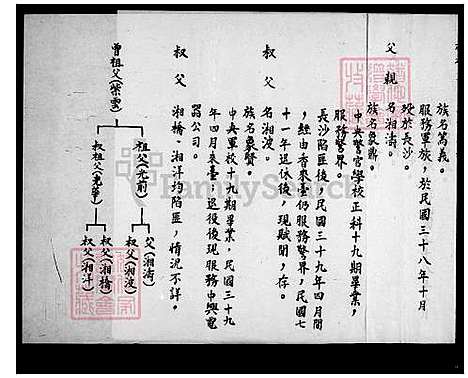 族名篤義。
服務軍旅，於民國三十八年十月
歿於長沙。
父親 名湘濤。
族名象鼎。
中央警官學校正科十九期畢業，
服務警界。
長沙陷匪後，民國三十九年四月間
，經由香來臺仍服務警界，民國七
十一年退休後，現賦閒，存。
叔父 名湘波。
族名象賢。
中央軍校十九期畢業，民國三十九
年四月來臺，退役後現服務中興電
器公司。
叔父 湘橋、湘洋均陷匪，情況不詳。
曾祖父(紫雲)
祖父(光前)
叔祖父(光華)
父(湘濤)
叔父(湘波)
叔父(湘橋)
叔父(湘洋)
FamilySearch